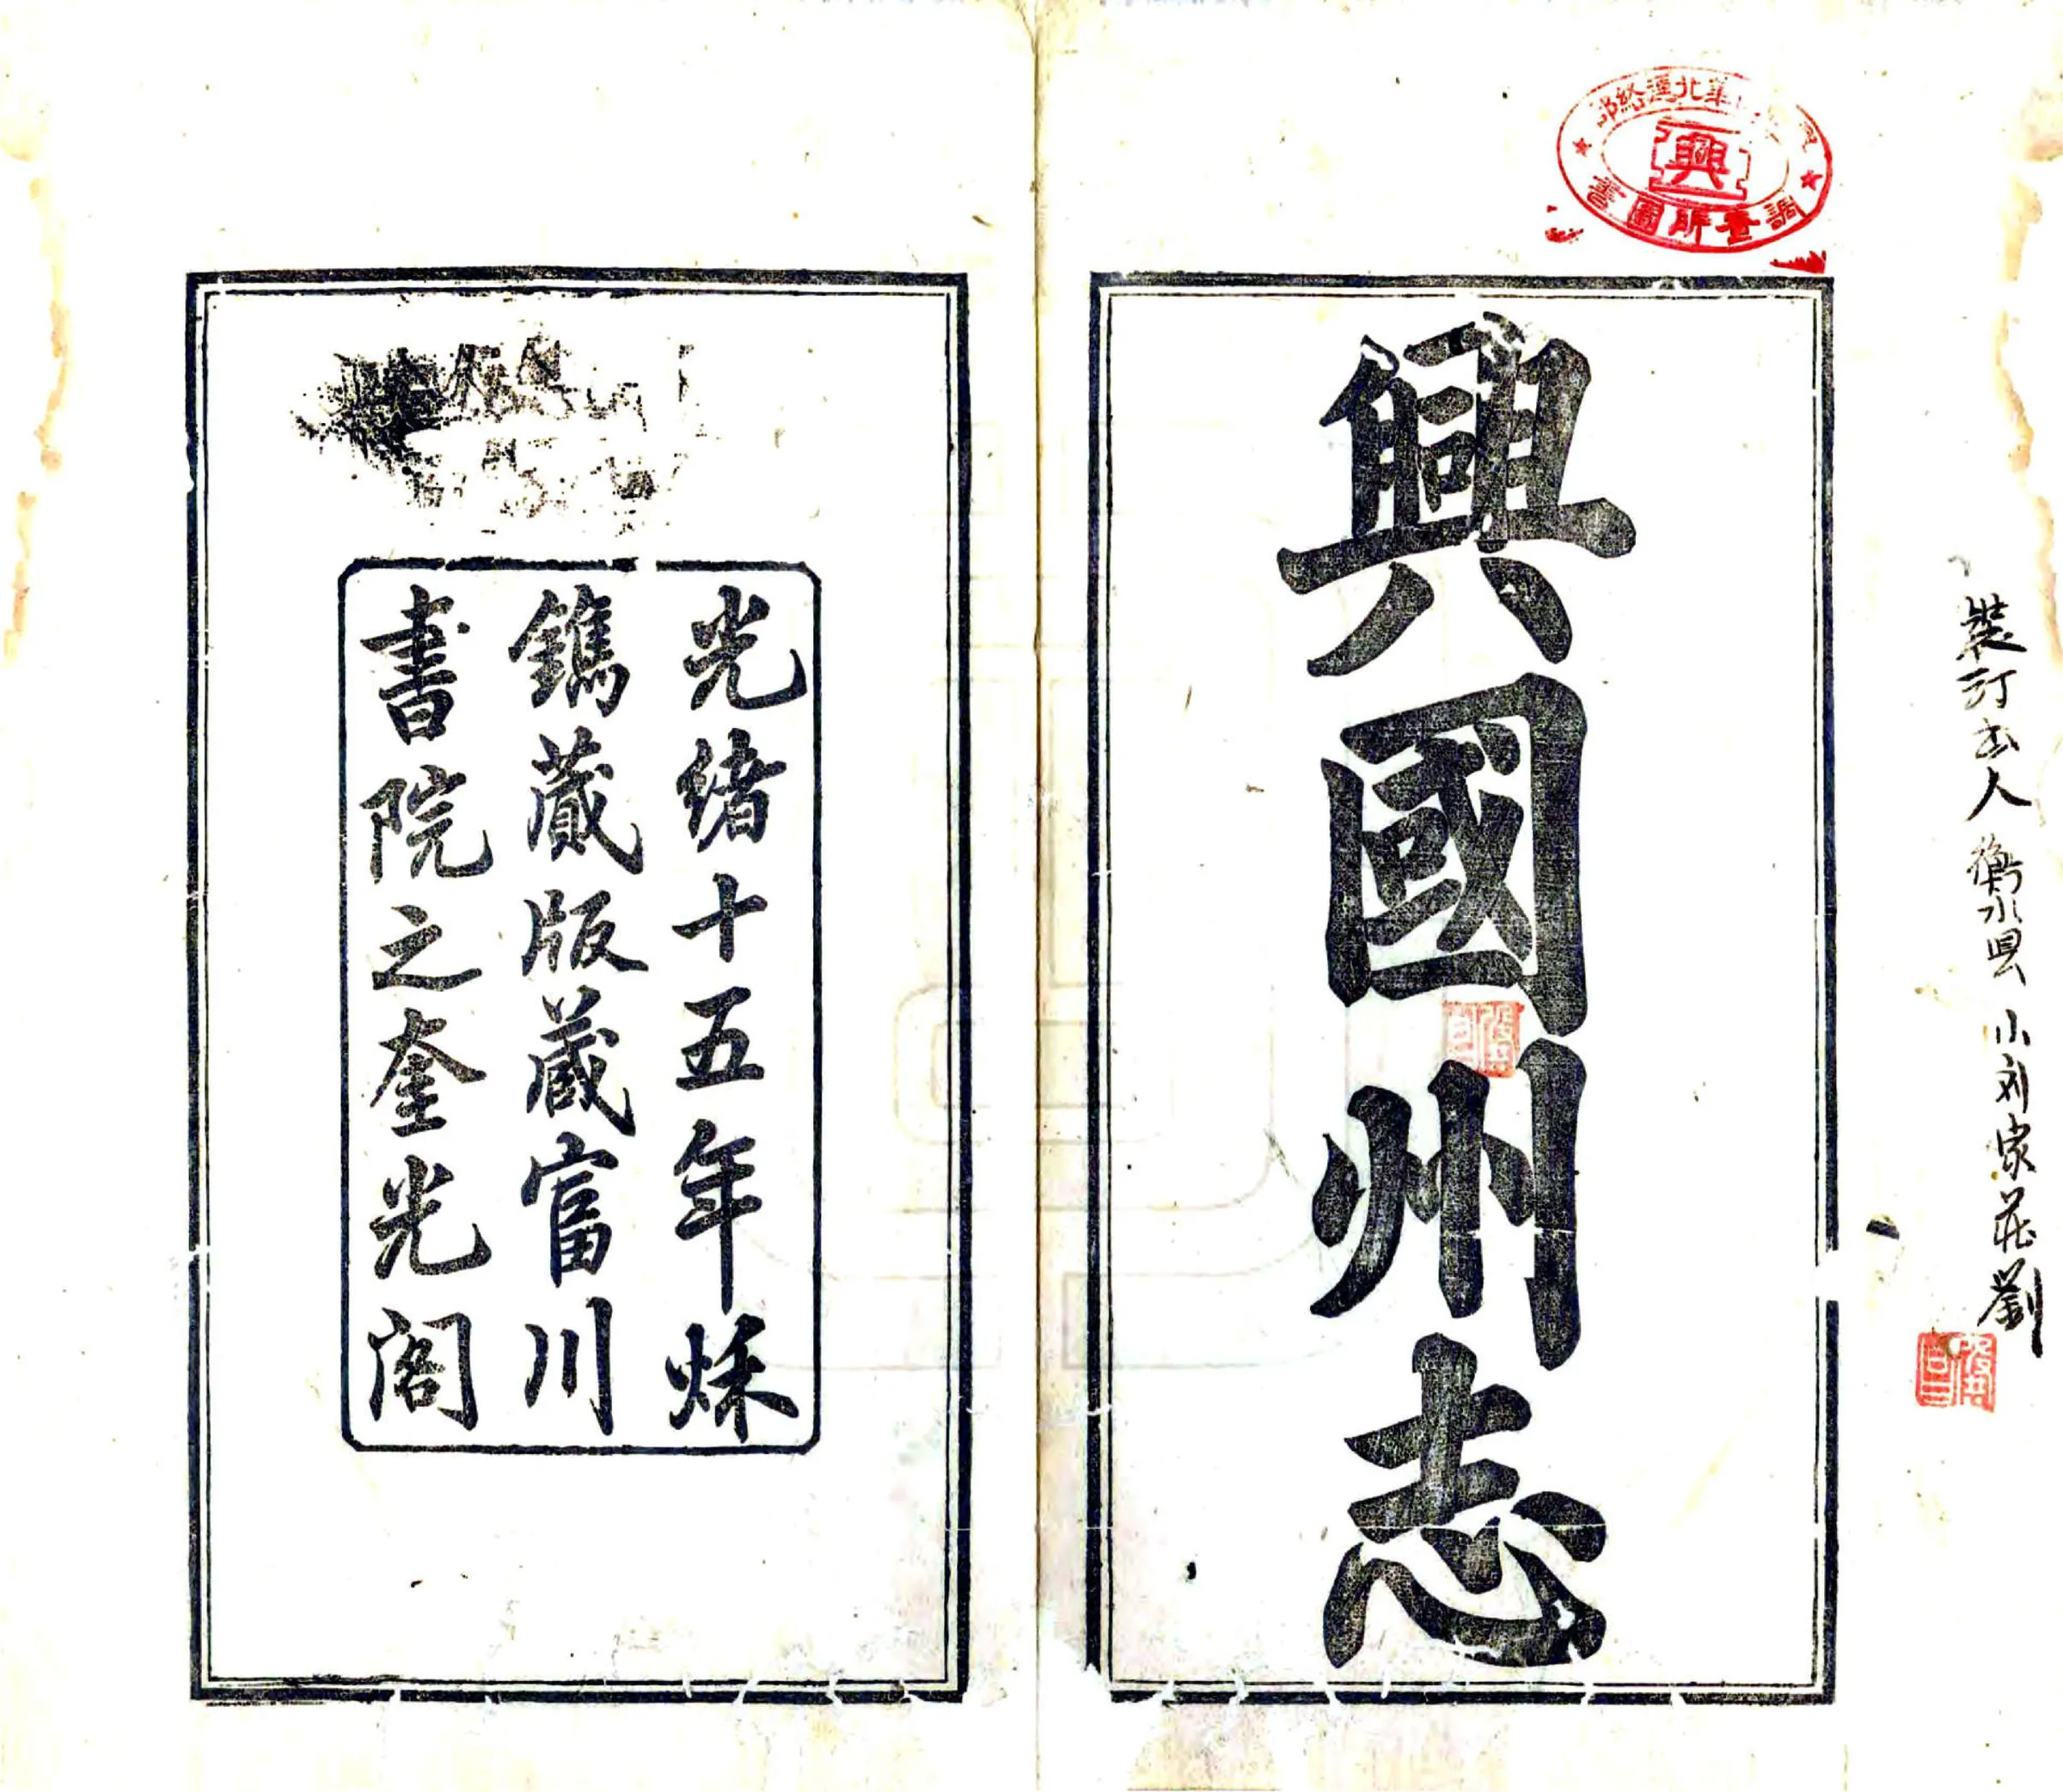 興國州志
光緒十五年烌
鐫藏版藏富川
書院之奎光阁
裝訂去人 衡水县 小刘家莊劉
華北連絡部
興
調查所圖書